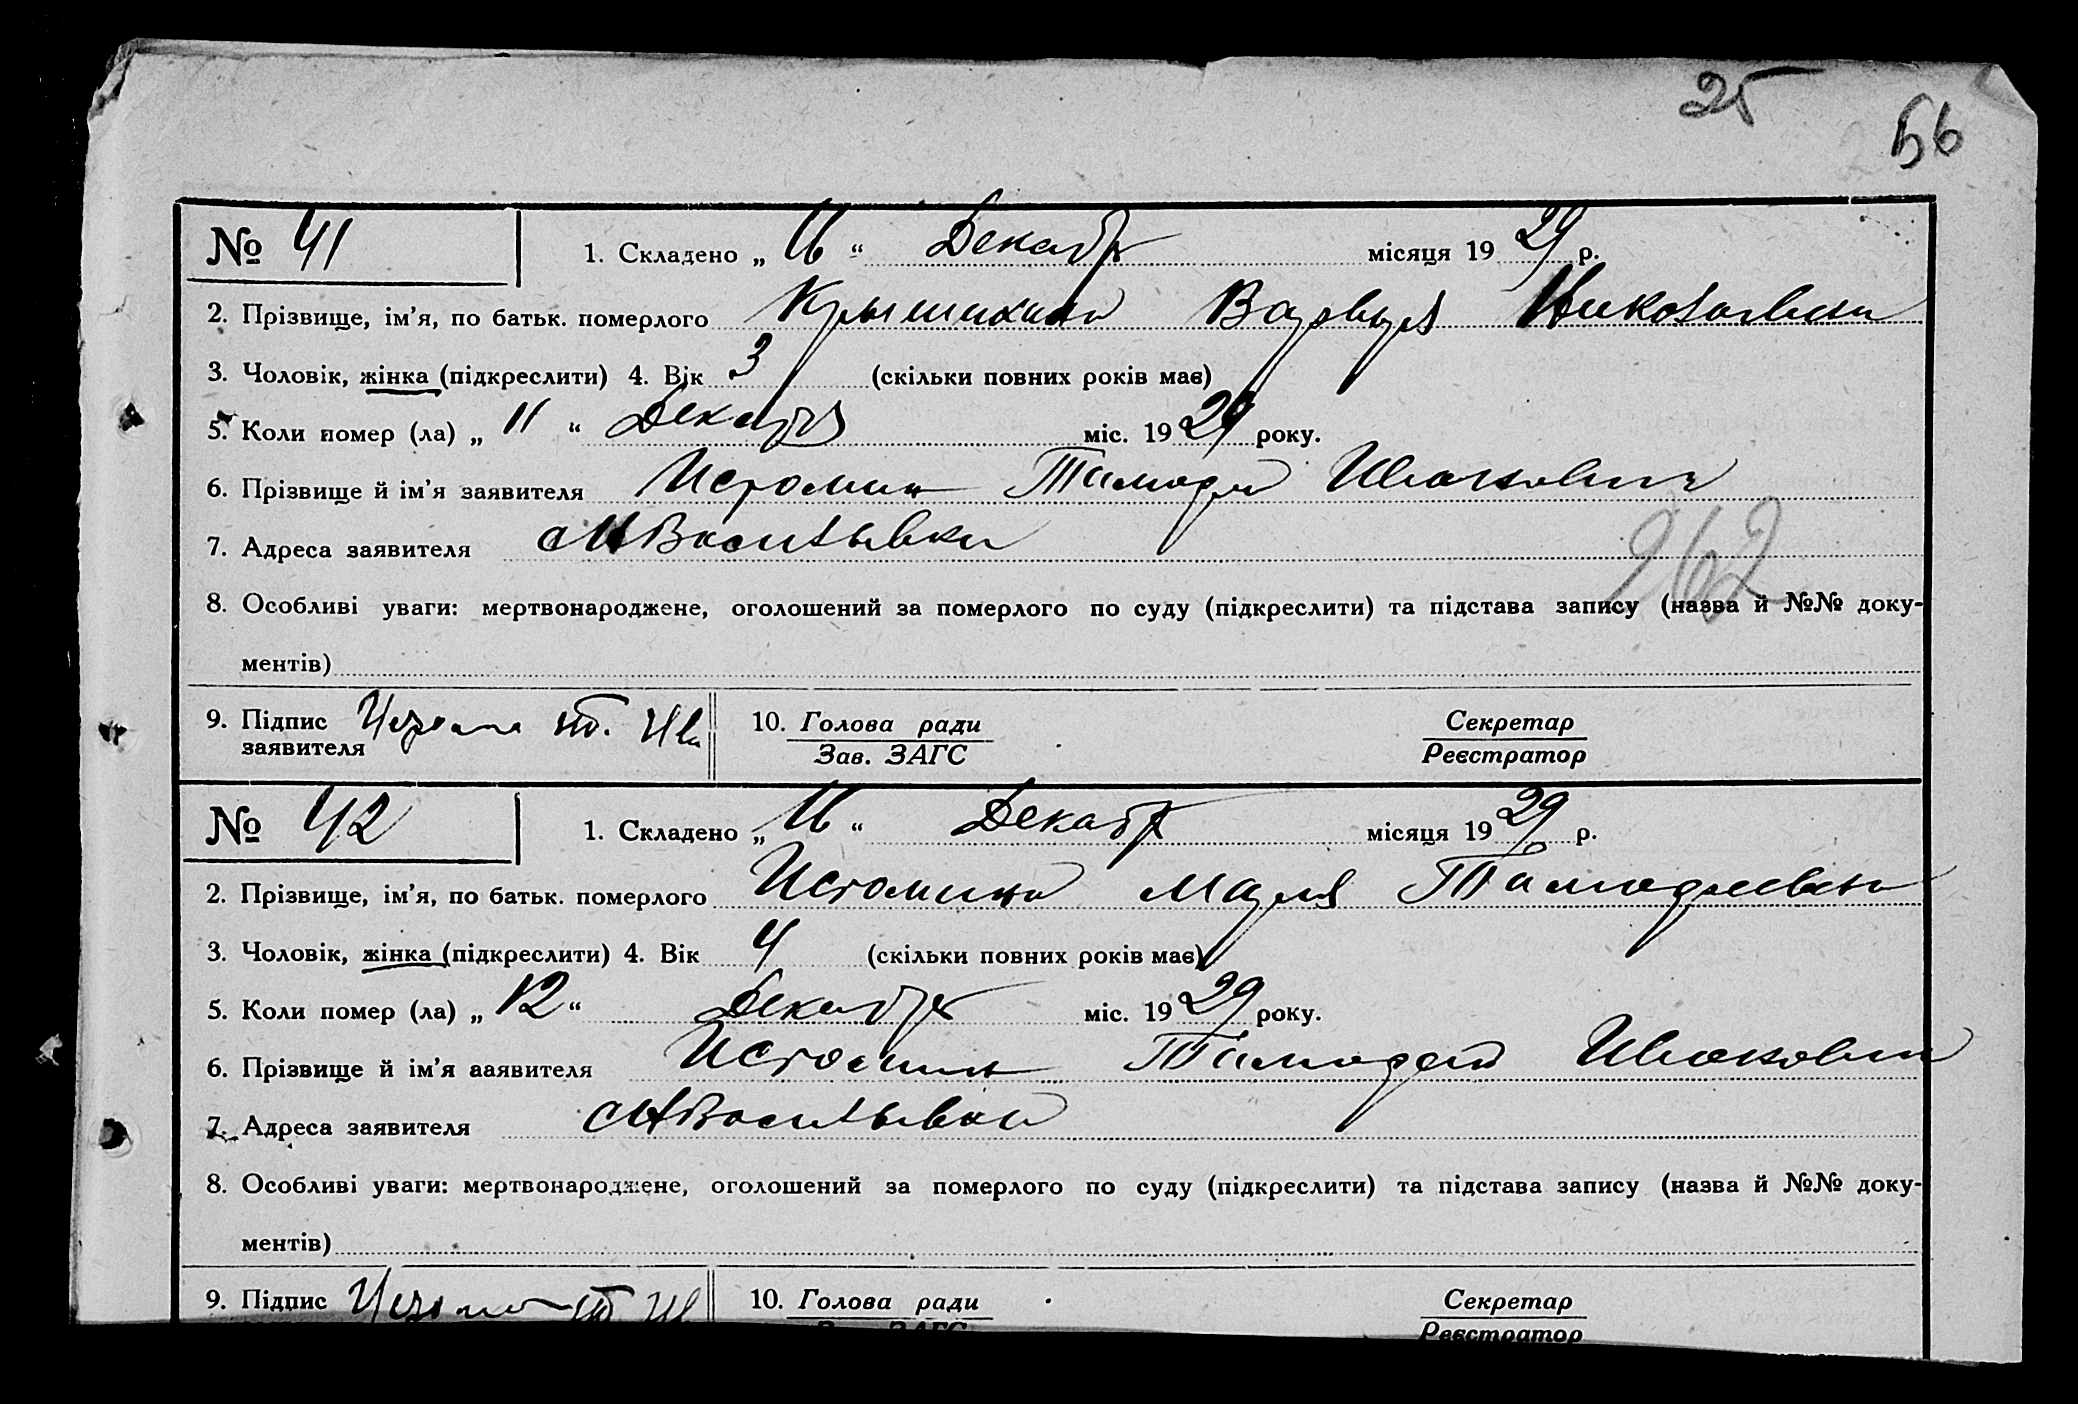 25
56
№ 41 1. Складено „ 16 “ Декабр місяця 19 29 р.
2. Прізвище, ім’я, по батьк. померлого Варвара Николаевна
3. Чоловік, жінка (підкреслити) 4. Вік 3 (скільки повних років має)
5. Коли помер (ла) „ 11 “ Декабря міс. 19 29 року.
6. Прізвище й ім’я заявителя Истомин Тимофей Иванович
7. Адреса заявителя
262
8. Особливі уваги: мертвонароджене, оголошений за померлого по суду (підкреслити) та підстава запису (назва й №№ доку-
ментів)
9. Підпис 10. Голова ради Секретар
заявителя Зав. ЗАГС Реєстратор
№ 42 1. Складено „ 16 “ Декабр місяця 19 29 р.
2. Прізвище, ім’я, по батьк. померлого Истомина Мария Тимофеевна
3. Чоловік, жінка (підкреслити) 4. Вік 4 (скільки повних років має)
5. Коли помер (ла) „ 12 “ Декабря міс. 19 29 року.
6. Прізвище й ім’я заявителя Истомин Тимофей Иванович
7. Адреса заявителя
8. Особливі уваги: мертвонароджене, оголошений за померлого по суду (підкреслити) та підстава запису (назва й №№ доку-
ментів)
9. Підпис 10. Голова ради Секретар
Зав. ЗАГС Реєстратор